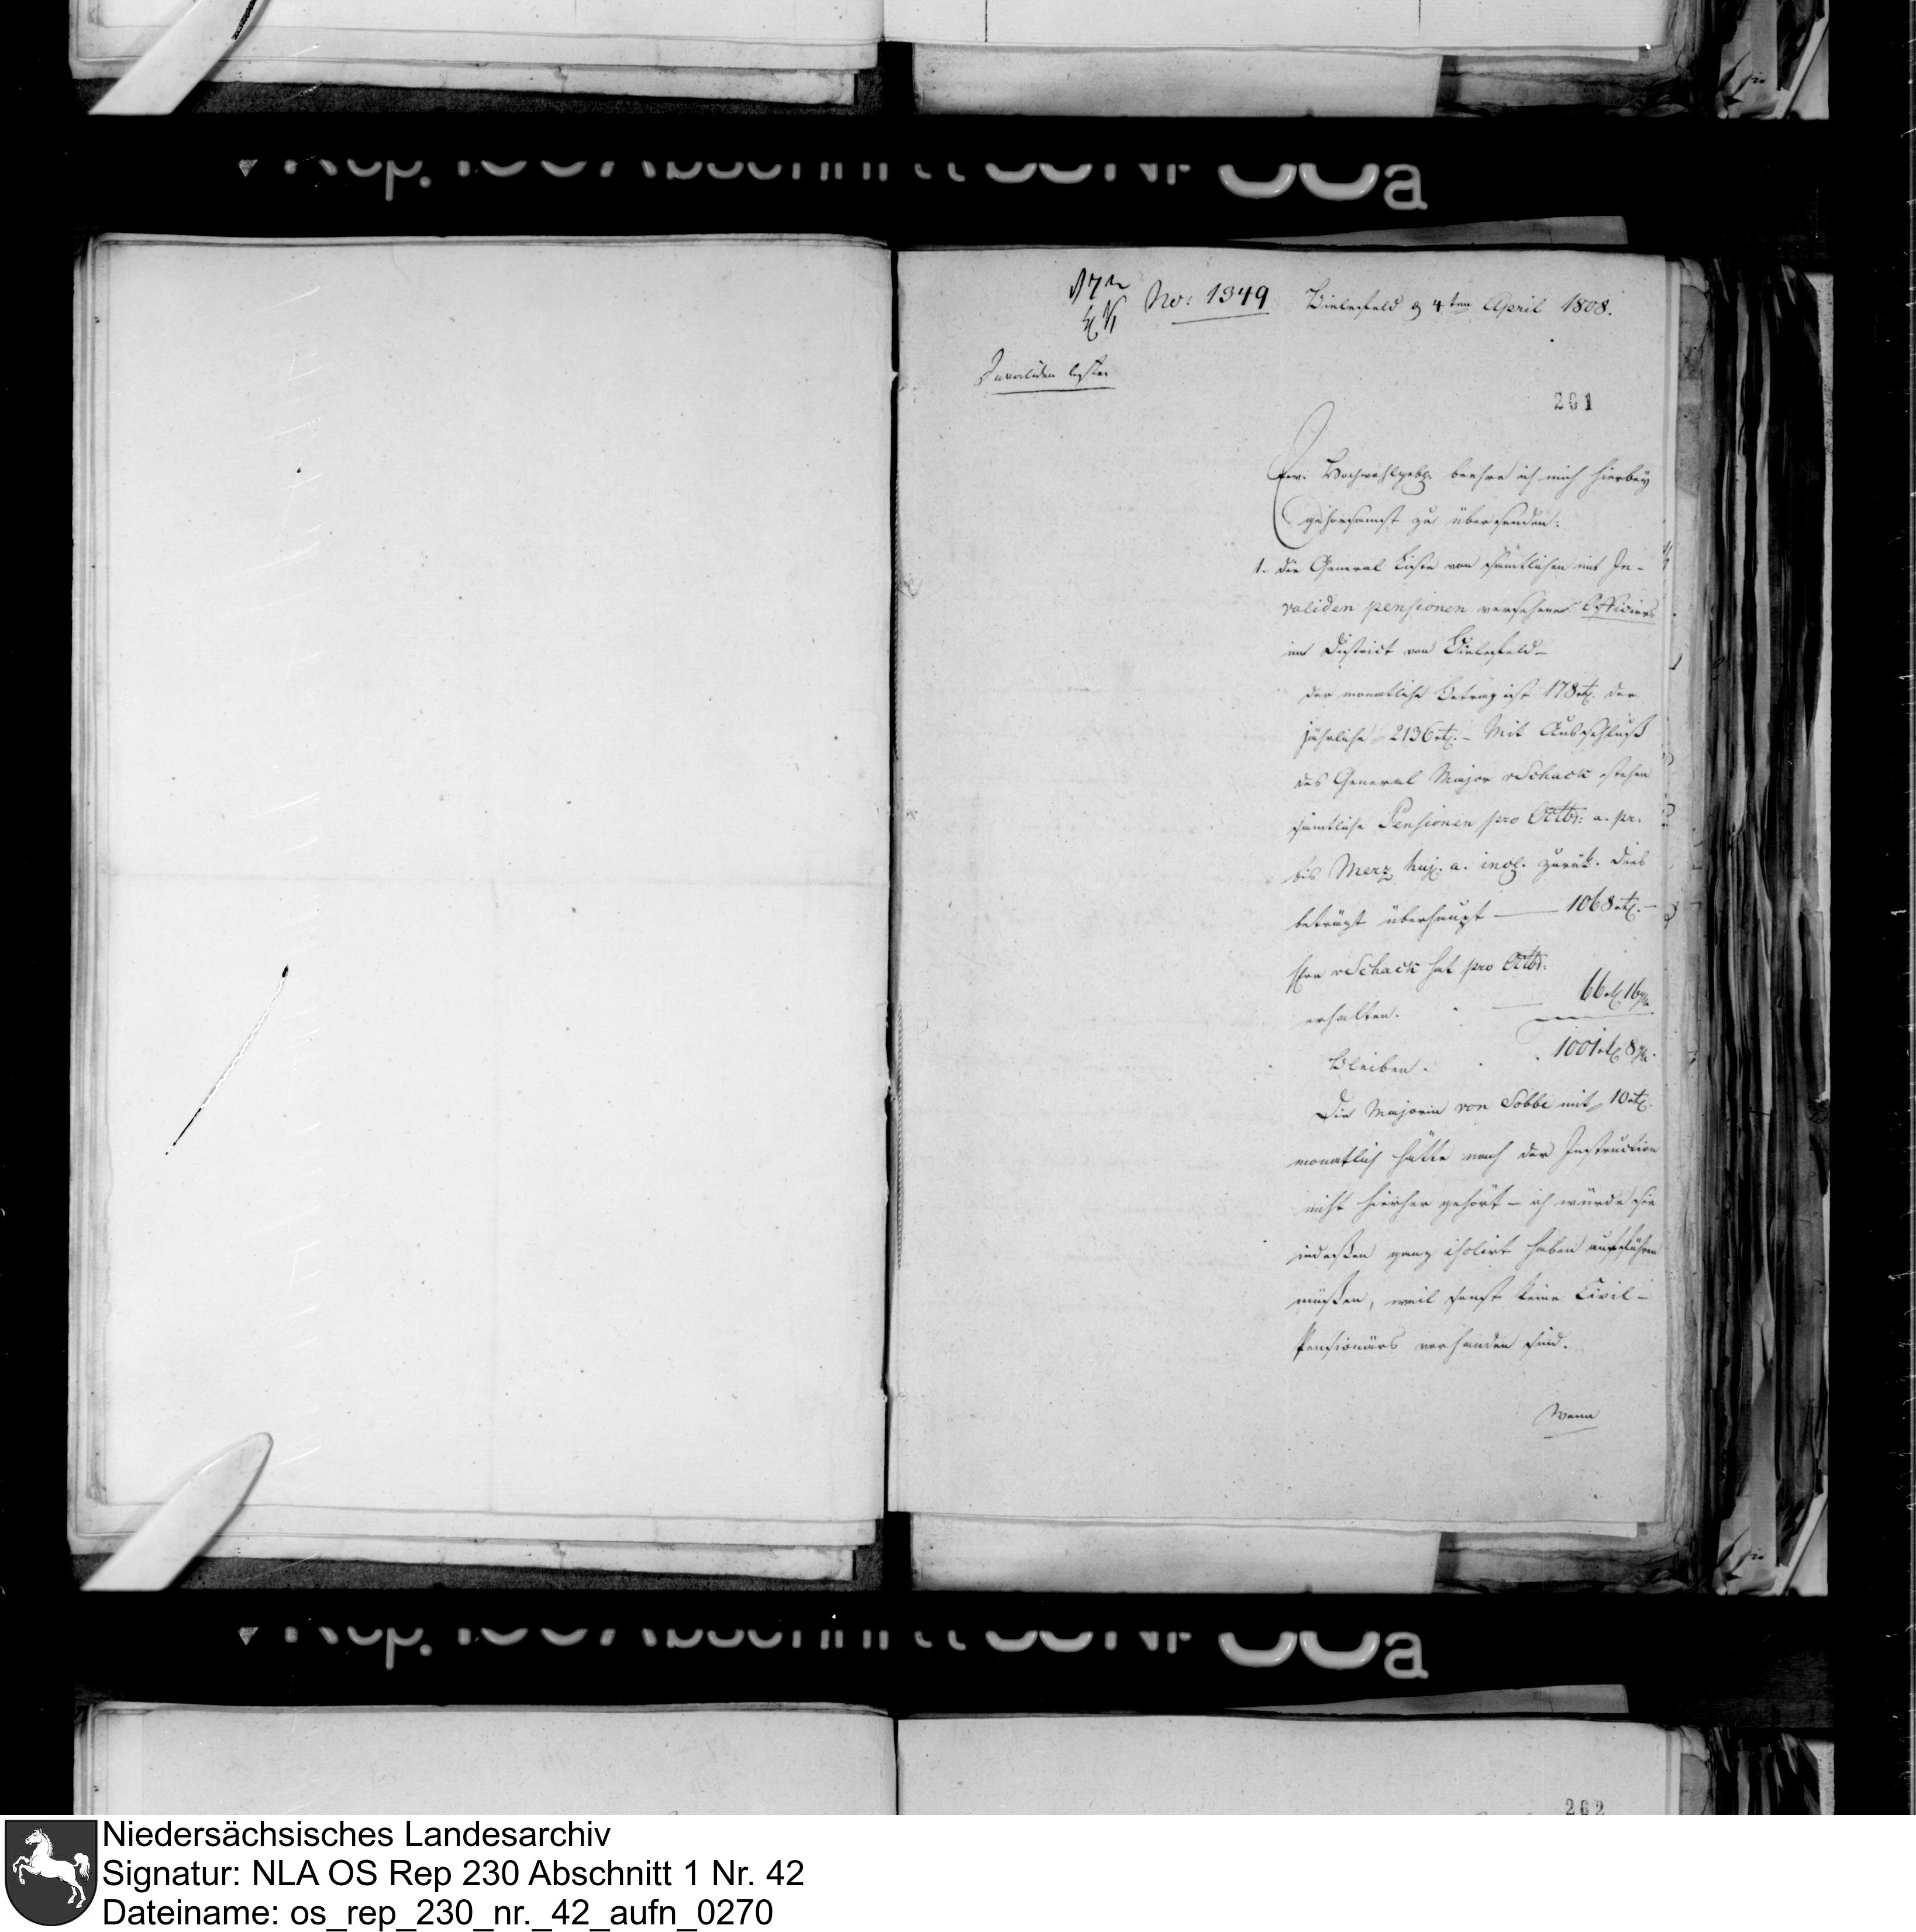 No: 1349 Bielefeld d 4ten April 1808.
Invaliden listen
261
Ew: Hochwohlgeb. beehre ich mich hierbey
gehorsamst zu übersenden:
1. die General Liste von sämtlichen mit In-
validen pensionen versehenen Officiers
im District von Bielefeld_
der monatliche Betrag ist 178 rtl. der
jährliche 2136 rtl. _ Mit Ausschluß
des General Major v Schack stehen
sämtliche Pensionen pro Octbr: a. pr.
bis Merz huj. a. incl. zurük. dies
beträgt überhaupt — 1068 rtl. —
Herr v Schack hat pro Octbr:
erhalten. 66 rtl 16 ggr.
Bleiben. 1001 rtl 8 ggr.
Die Majorin von Sobbe mit 10 rtl.
monatlich hätte nach der Instruction
nicht hierher gehört – ich würde sie
indeßen ganz isolirt haben aufführen
müßen, weil sonst keine Civil-
Pensionärs vorhanden sind.
Wenn
262
Niedersächsisches Landesarchiv
Signatur: NLA OS Rep 230 Abschnitt 1 Nr. 42
Dateiname: os_rep_230_nr._42_aufn_0270